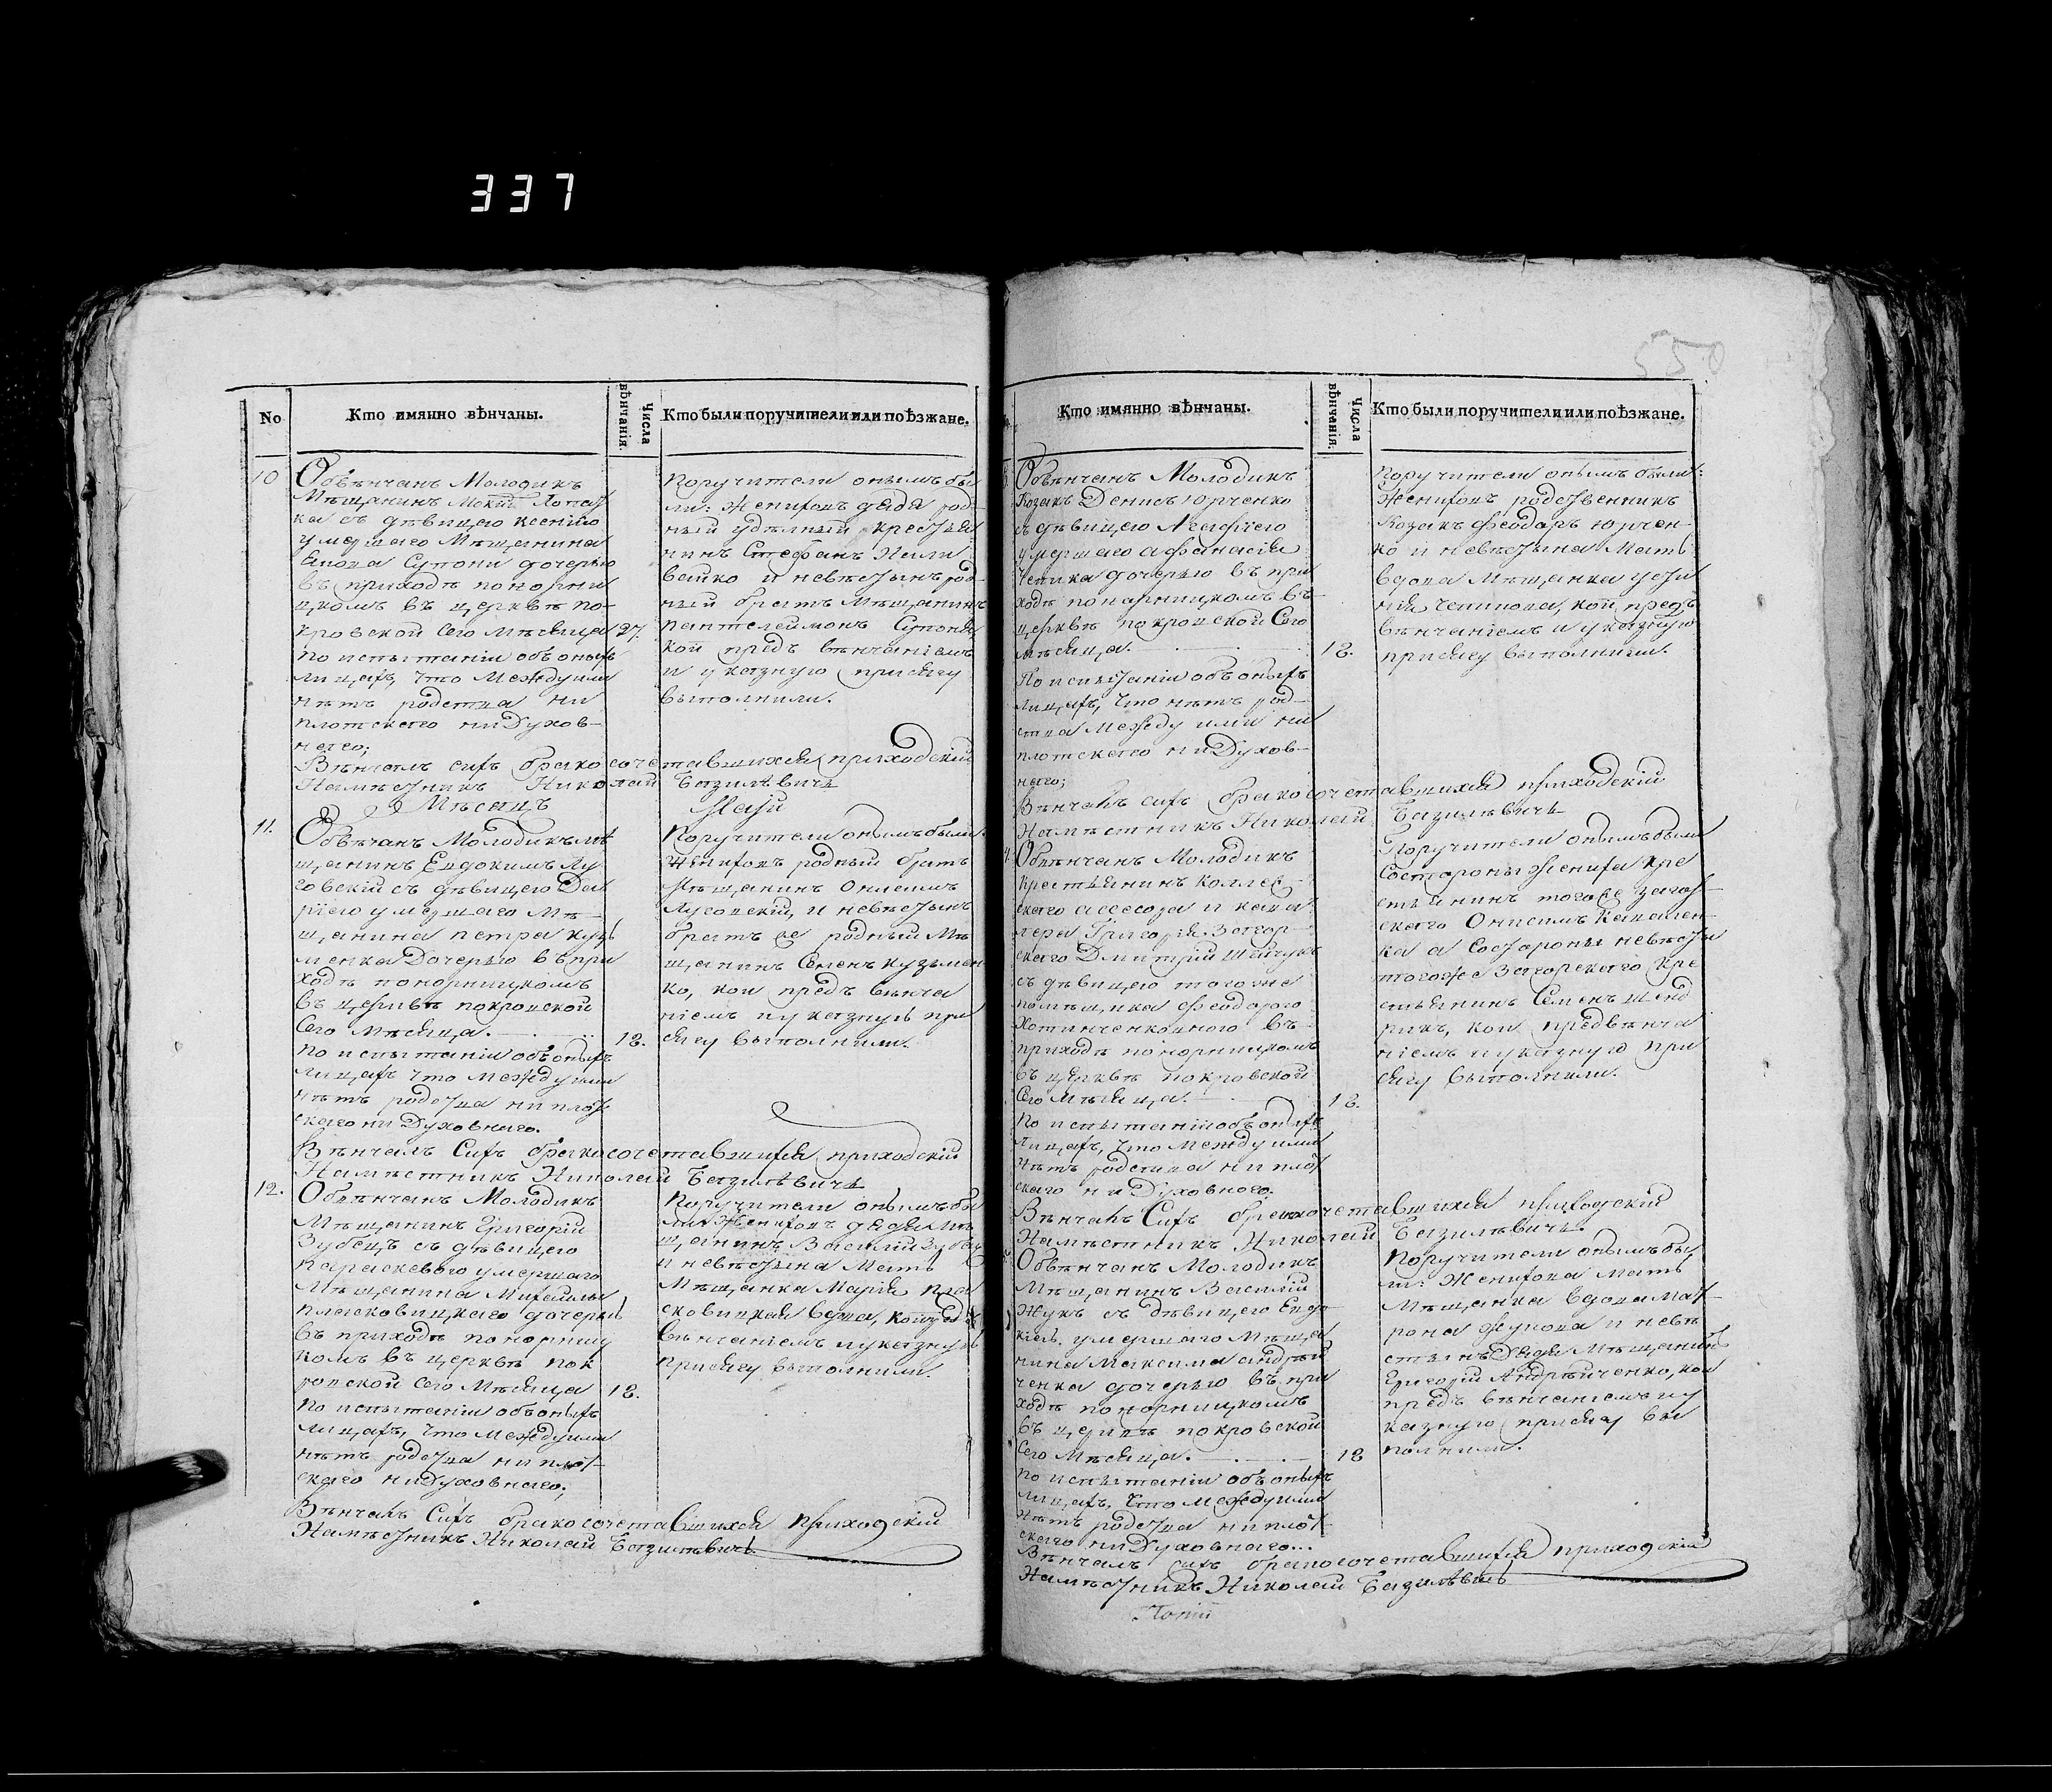 337
550
No
Кто имянно вѣнчаны.
Числа вѣнчанія.
Кто были поручители или поѣзжане.
10
Обвѣнчанъ Молодикъ
Мѣщанинъ Мокій Лопат
ка съ дѣвицею Ксеніею
умершаго Мѣщанина
Супони дочерью
въ приходѣ понорни
цкомъ въ церквѣ по-
кровской сего мѣсяца
27.
по испытаніи обоныхъ
лицахъ, что Между ими
нѣтъ родства ни
плотскаго ни Духов-
наго;
Поручители онымъ бы
ли: Жениховъ дядя род-
ный удѣлный крестья
нинъ Стефанъ Нали
вайко и невѣстынъ род-
ный братъ Мѣщанинъ
Пантелеймонъ Супоня
кои предъ вѣнчаніемъ
и указную присягу
выполнили.
Вѣнчалъ сихъ бракосочетавшихся приходскій
Намѣстникъ Николай Базилѣвичъ
Мѣсяцъ Маій
11.
Обвѣнчанъ Молодикъ мѣ
щанинъ Евдокимъ Лу
говскій съ дѣвицею Да
ріею умершаго Мѣ-
щанина Петра Кузь
менка Дочерью въ при
ходѣ понорницкомъ
въ церквѣ покровской
Сего Мѣсяца.
12.
по испытаніи обоныхъ
лицахъ что Между ими
нѣтъ родства ни плот
скаго ни Духовнаго.
Поручители онымъ были:
Жениховъ родный братъ
Мѣщанинъ Онисимъ
Луговскій, и невѣстынъ
братъ ее родный Мѣ
щанинъ Семенъ Кузьмен
ко, кои предъ вѣнча
ніемъ и указную при
сягу выполнили.
Вѣнчалъ Сихъ бракосочетавшихся приходскій
Намѣстникъ Николай Базилѣвичъ
12.
Обвѣнчанъ Молодикъ
Мѣщанинъ Григорій
Зубецъ съ дѣвицею
Параскевою умершаго
Мѣщанина Михаила
Плаековицкаго дочерью
въ приходѣ понорниц
комъ въ церквѣ пок
ровской сего Мѣсяца
12.
по испытаніи обоныхъ
лицахъ, что Между ими
нѣтъ родства ни плот-
скаго ни Духовнаго;
Поручители онымъ бы
ли Жениховъ дядя Мѣ
щанинъ Василій Зубец
и невѣстына Мать
Мѣщанка Марія Пла
сковицкая вдова, кои предъ
вѣнчаніемъ и указную
присягу выполнили.
Вѣнчалъ Сихъ бракосочетавшихся приходскій
Намѣстникъ Николай Базилѣвичъ
Кто имянно вѣнчаны.
Числа вѣнчанія.
Кто были поручители или поѣзжане.
Обвѣнчанъ Молодикъ
Козакъ Денисъ Юрченко
съ дѣвицею Агафіею
умершаго Афанасія
Чепика дочерью въ при
ходѣ понорницкомъ въ
церквѣ покровской Сего
мѣсяца.
12.
По испытаніи обоныхъ
лицахъ, что нѣтъ род-
ства Между ими ни
плотскаго ни Духов-
наго;
Поручители онымъ были:
Жениховъ родственникъ
Козакъ Феодоръ Юрчен-
ко и невѣстына Мать
вдова Мѣщанка Усти
нія Чепикова, кои предъ
вѣнчаніемъ и указную
присягу выполнили.
Вѣнчалъ сихъ бракосочетавшихся приходскій
Намѣстникъ Николай Базилѣвичъ
Обвѣнчанъ Молодикъ
крестьянинъ Коллеж-
скаго асесора и кава
лера Григорія Загор-
скаго Дмитрій
съ дѣвицею того же
помѣщика Феодорою
въ
приходѣ понорницкомъ
въ церквѣ покровской
Сего Мѣсяца.
12.
По испытаніи обоныхъ
лицахъ, что Между ими
нѣтъ родства ни плот
скаго ни Духовнаго.
Поручители онымъ были
Состороны жениха кре
стьянинъ тогоже Загор-
скаго Онисимъ Кавален-
ка а Состороны невѣсты
тогоже Загорскаго кре
стьянинъ Семенъ
кои предвѣнча
ніемъ и указную при
сягу выполнили.
Вѣнчалъ Сихъ бракосочетавшихся приходскій
Намѣстникъ Николай Базилѣвичъ
Обвѣнчанъ Молодикъ
Мѣщанинъ Василій
Жукъ съ дѣвицею Евдо
кіею умершаго Мѣща
нина Максима Андрѣй
ченка дочерью въ при
ходѣ понорницкомъ
въ церквѣ покровской
Сего Мѣсяца.
12
по испытаніи обоныхъ
лицахъ, что Между ими
нѣтъ родства ни плот-
скаго ни Духовнаго...
Поручители онымъ бы
ли: Женихова мать
Мѣщанка вдова Мат-
рона Жукова и невѣ
стынъ Дядя Мѣщанинъ
Григорій Андрѣйченко, кои
предъ вѣнчаніемъ и у
казную присягу вы
полнили.
Вѣнчалъ сихъ бракосочетавшихся приходскій
Намѣстникъ Николай Базилѣвичъ